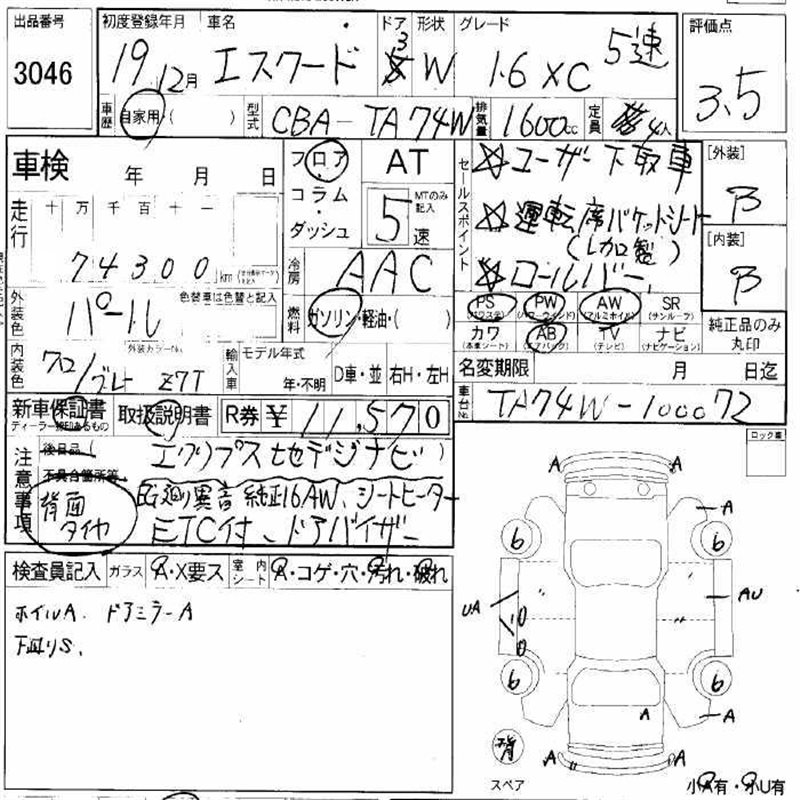 出品番号
3046
初度登録年月 車名 ドア 形状 グレード 評価点
19 12月 エスクード 3 W 1.6 XC 5速 3.5
車歴 自家用・( ) 型式 CBA-TA74W 排気量 1600cc 定員 4人
車検 年 月 日
フロア AT
コラム・ダッシュ
MTのみ記入
5速
走行
十 万 千 百 十 一
74300 km
冷房 AAC
燃料 ガソリン・軽油・( )
外装色 パール
色替車は色替と記入
外装カラーNo. Z7T
内装色 クロ/グレー
輸入車 モデル年式 年・不明 D車・並 右H・左H
セールスポイント
☆ユーザー下取車
☆運転席バケットシート
(レカロ製)
☆ロールバー
PS PW AW SR
(パワステ) (パワーウインド) (アルミホイル) (サンルーフ)
カワ AB TV ナビ
(本革シート) (エアバック) (テレビ) (ナビゲーション)
純正品のみ丸印
[外装] B
[内装] B
名変期限 月 日迄
車台No. TA74W-100072
新車保証書 取扱説明書 R券 ¥ 11,570
注意事項
後日品 (
エクリプス地デジナビ )
不具合箇所等
異音 純正16AW、シートヒーター
ETC付、ドアバイザー
背面タイヤ
検査員記入 ガラス A・X要ス 室内シート A・コゲ・穴・汚れ・破れ
ホイルA. ドアミラーA
下廻りS.
ロック車
A A
A
6 6
UA AU
6 6
A A
A A
背
スペア
小A有・小U有